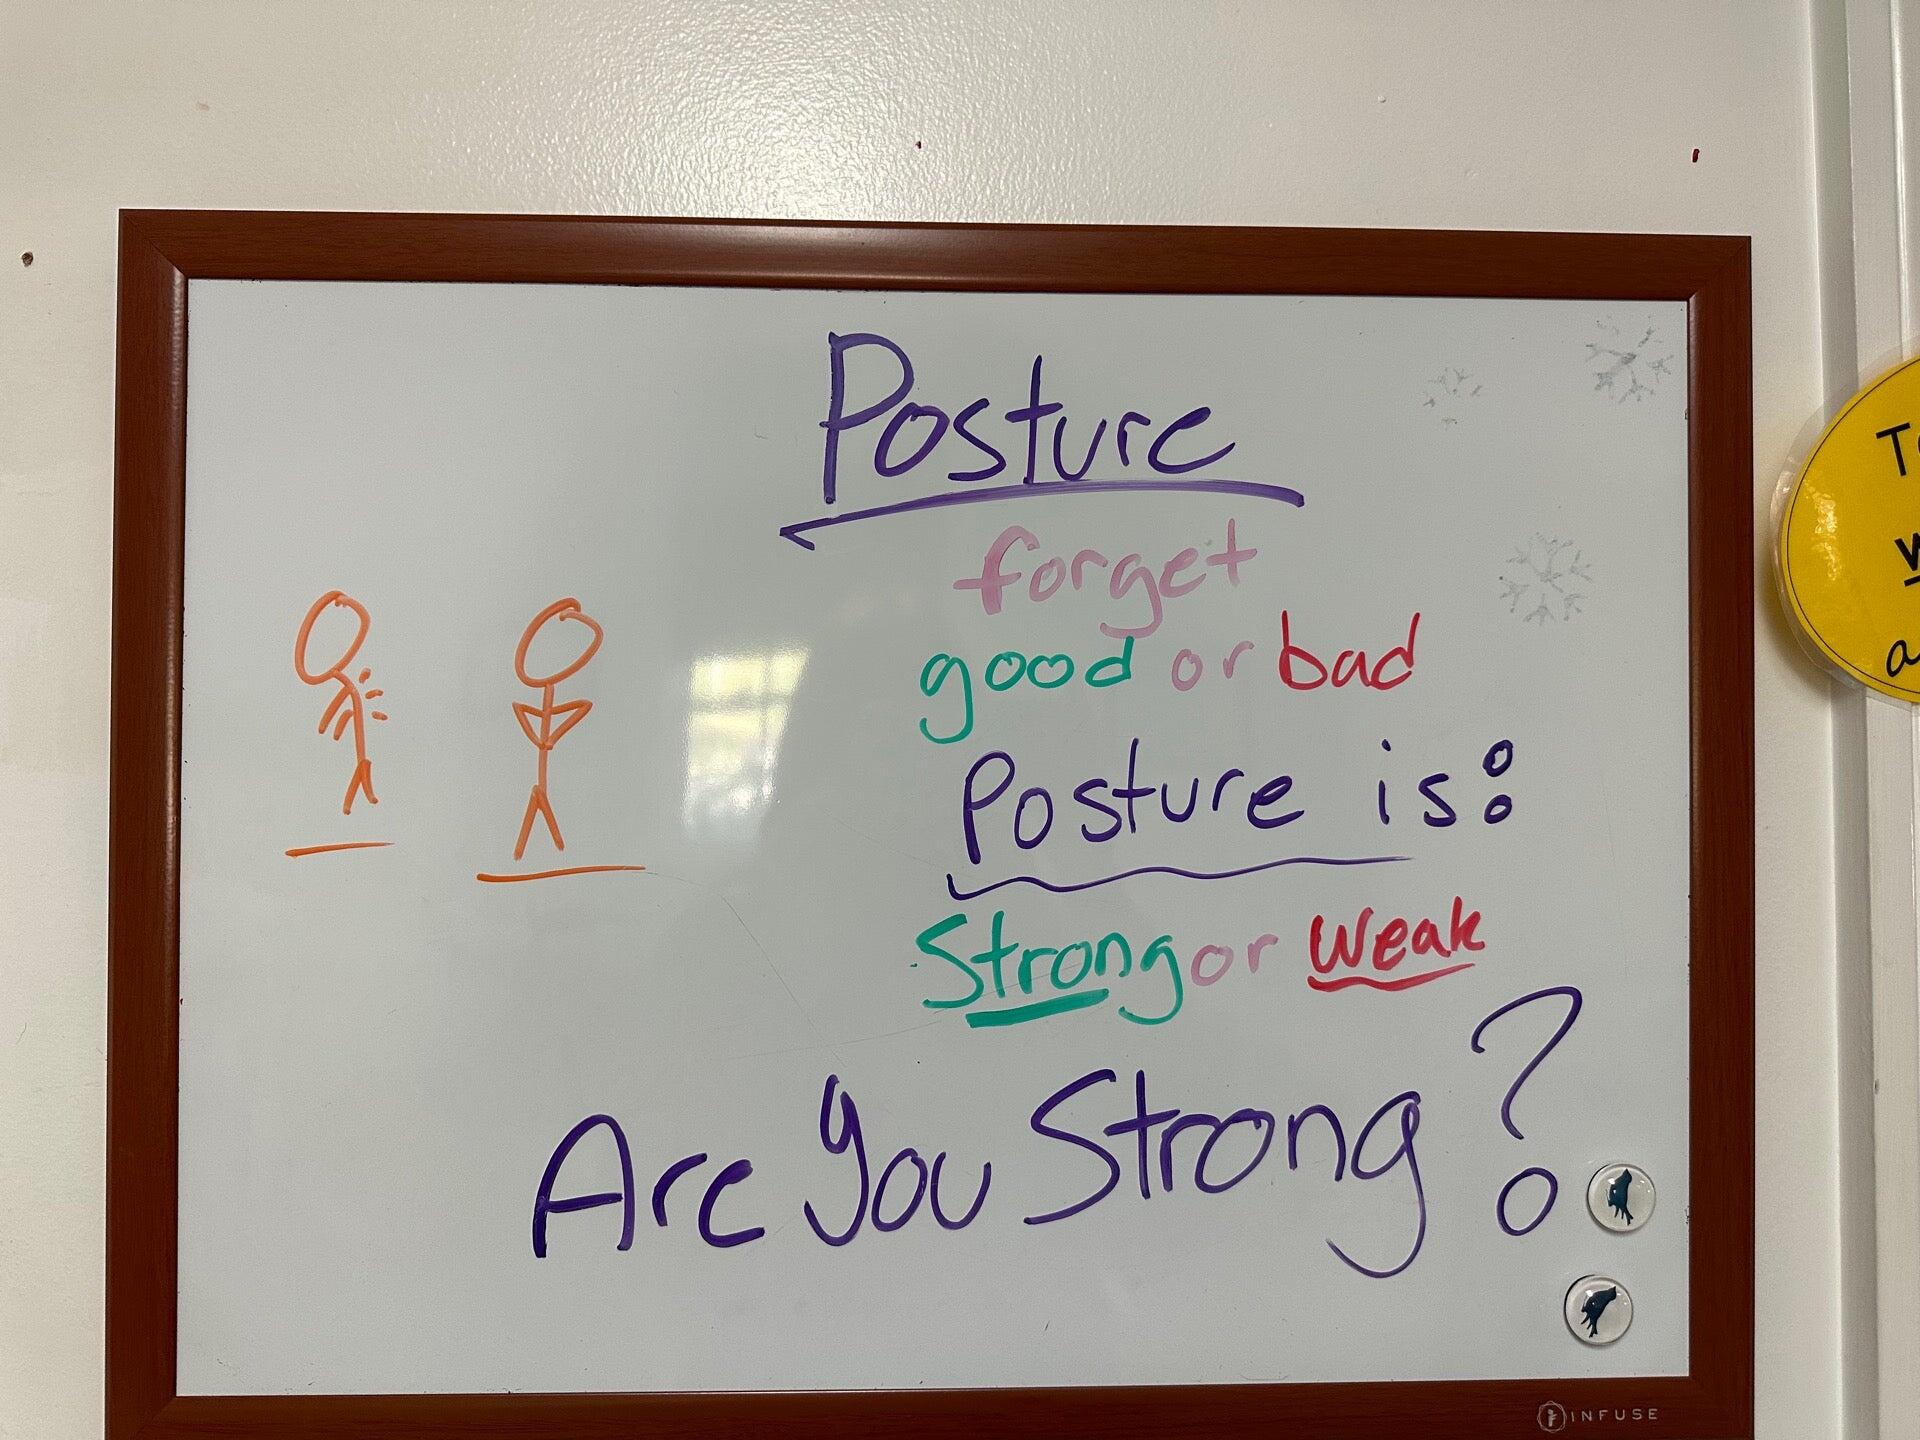 Posture
forget
good or bad
Posture is:
Strong or weak
Are you Strong?
INFUSE